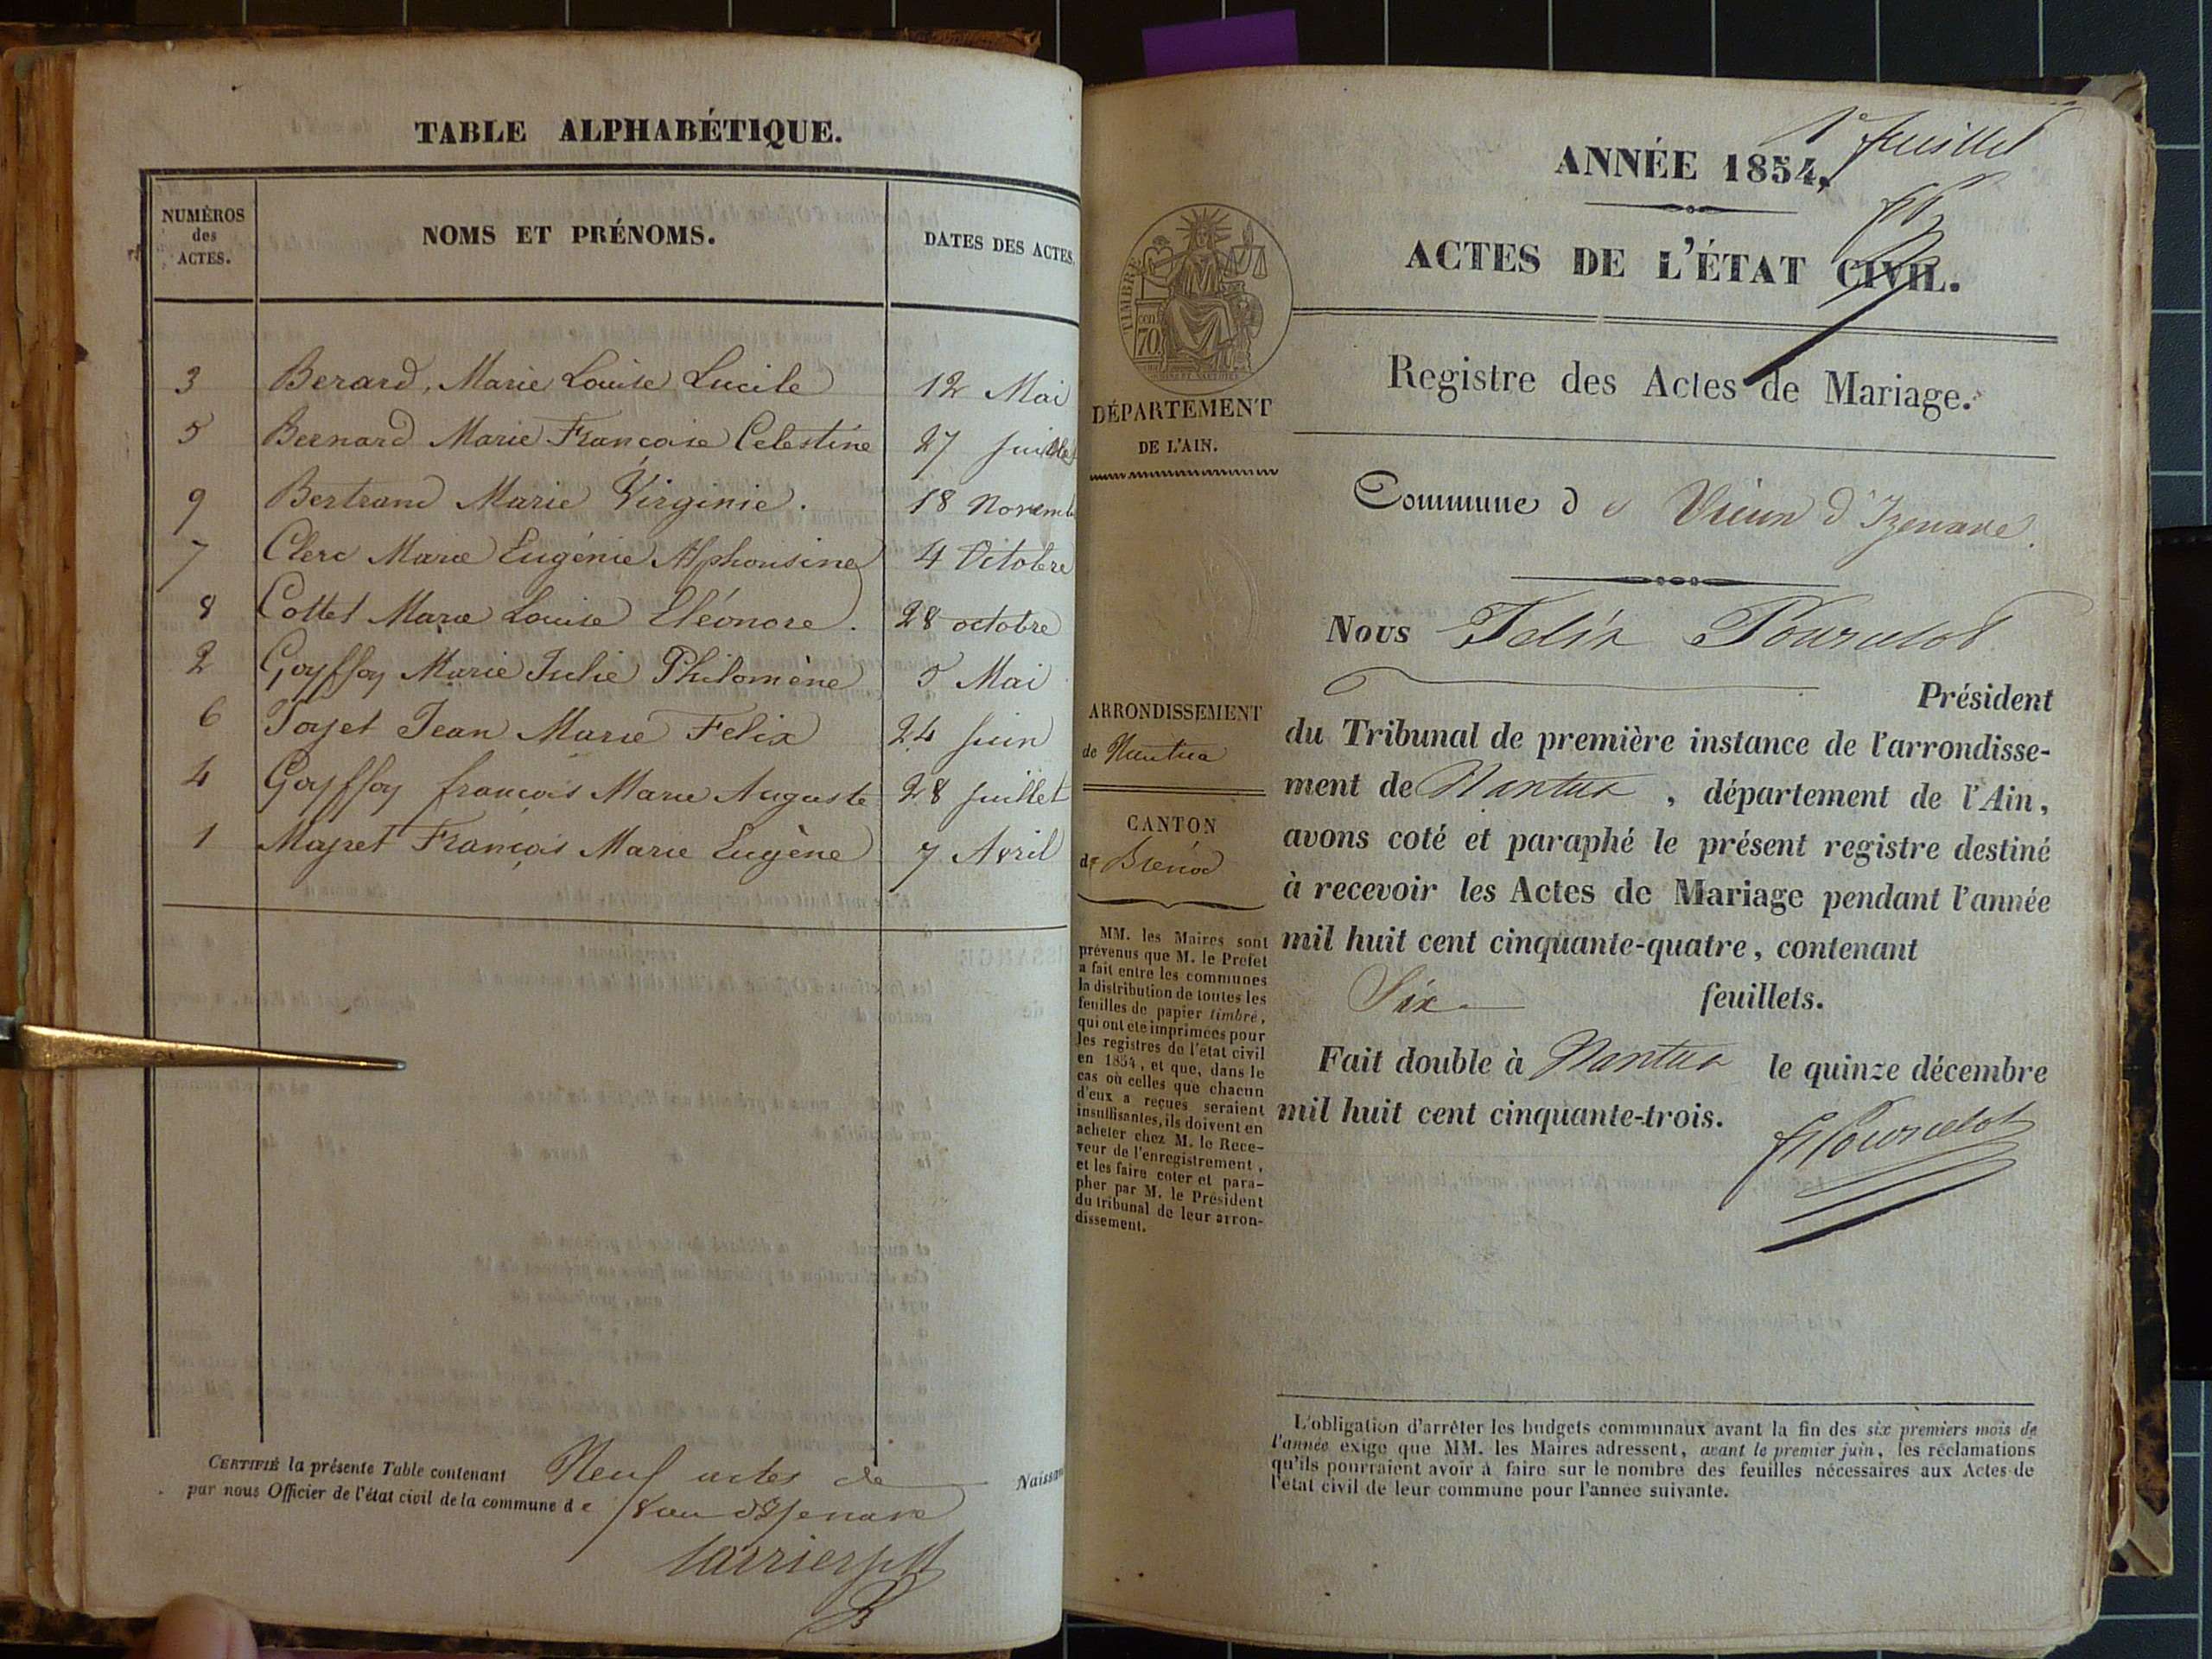 TABLE ALPHABÉTIQUE.
NUMÉROS des ACTES.
NOMS ET PRÉNOMS.
DATES DES ACTES.
3 Berard, Marie Louise Lucile 12 Mai
5 Bernard Marie Françoise Celestine 27 juillet
9 Bertrand Marie Virginie. 18 Novemb
7 Clerc Marie Eugénie Alphonsine 4 Octobre
8 Cottet Marie Louise Eléonore. 28 octobre
2 Goyffoy Marie Julie Philomène 5 Mai
6 Jean Marie Felix 24 juin
4 Goyffoy françois Marie Auguste 28 juillet
1 François Marie Eugène 7 Avril
CERTIFIÉ la présente Table contenant Neuf actes de Naissan
par nous Officier de l'état civil de la commune d e
1er feuillet
ANNÉE 1854,
ACTES DE L'ÉTAT CIVIL.
Registre des Actes de Mariage.
TIMBRE
cent
70.
DÉPARTEMENT
DE L'AIN.
Commune d e Vieux d'Izenave.
Nous Félix Pourcelot
Président
du Tribunal de première instance de l'arrondisse-
ment de Nantua, département de l'Ain,
avons coté et paraphé le présent registre destiné
à recevoir les Actes de Mariage pendant l'année
mil huit cent cinquante-quatre, contenant
Six feuillets.
Fait double à Nantua le quinze décembre
mil huit cent cinquante-trois.
Pourcelot
ARRONDISSEMENT
de Nantua
CANTON
de Brénod
MM. les Maires sont
prévenus que M. le Préfet
a fait entre les communes
la distribution de toutes les
feuilles de papier timbré,
qui ont été imprimées pour
les registres de l'état civil
en 1854, et que, dans le
cas où celles que chacun
d'eux a reçues seraient
insuffisantes, ils doivent en
acheter chez M. le Rece-
veur de l'enregistrement,
et les faire coter et para-
pher par M. le Président
du tribunal de leur arron-
dissement.
L'obligation d'arrêter les budgets communaux avant la fin des six premiers mois de
l'année exige que MM. les Maires adressent, avant le premier juin, les réclamations
qu'ils pourraient avoir à faire sur le nombre des feuilles nécessaires aux Actes de
l'état civil de leur commune pour l'année suivante.